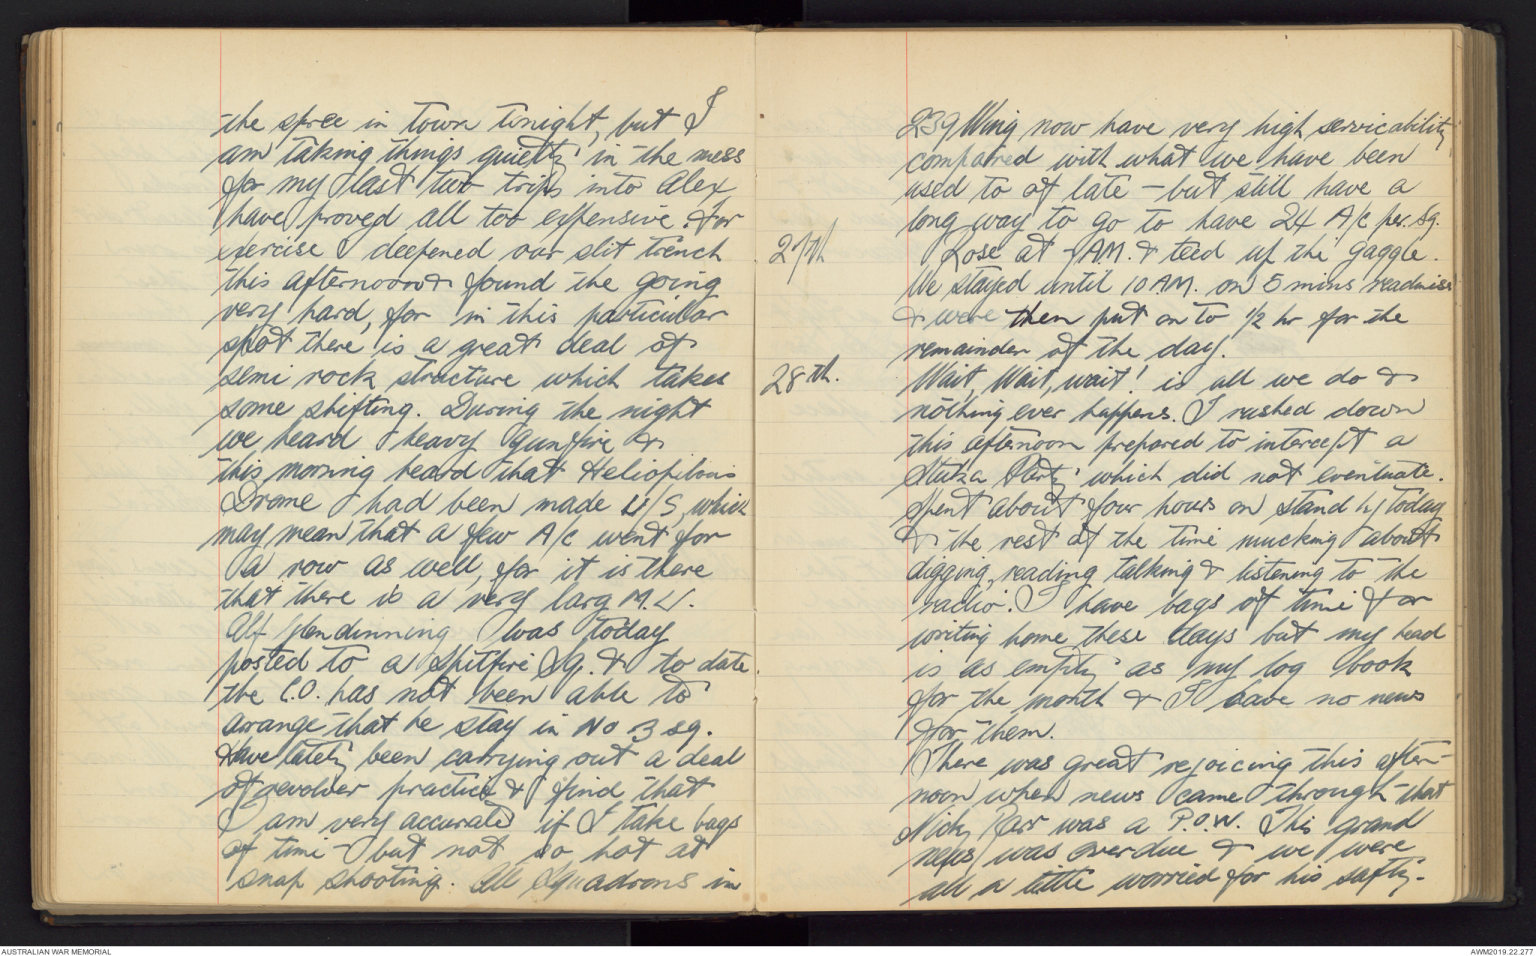 the spree in town tonight, but I
am taking things quietly in the mess
for my last two trips into Alex
have proved all too expensive. For
exercise I deepened our slit trench
this afternoon & found the going
very hard, for in this particular
spot there is a great deal of
semi rock structure which takes
some shifting. During the night
we heard heavy gunfire &
this morning heard that Heliopilous
Drome had been made U/S, which
may mean that a few A/C went for
a row as well, for it is there
that there is a very larg M.U.
Alf Glendinning was today
posted to a Spitfire Sq. & to date
the C.O. has not been able to
arrange that he stay in No 3 sq.
Have lately been carrying out a deal
of revolver practice & find that
I am very accurate if I take bags
of time - but not so hot at
snap shooting. All Squadrons in
239 Wing now have very high servicability
compaired with what we have been
used to of late - but still have a
long way to go to have 24 A/c per. Sq.
27th Rose at AM. & teed up the gaggle.
We stayed until 10 AM. on 5 mins readiness
& were then put on to 1/2 hr for the
remainder of the day.
28th. Wait, Wait, wait! is all we do &
nothing ever happens. I rushed down
this afternoon prepared to intercept a
Stuka Party which did not eventuate.
Spent about four hours on stand by today
& the rest of the time mucking about
digging, reading talking & listening to the
radio. I have bags of time for
writing home these days but my head
is as empty as my log book
for the month & I have no news
for them.
There was great rejoicing this after-
noon when news came through that
Nicky Barr was a P.O.W. This grand
news was overdue & we were
all a little worried for his safty.
AUSTRALIAN WAR MEMORIAL
AWM2019.22.277